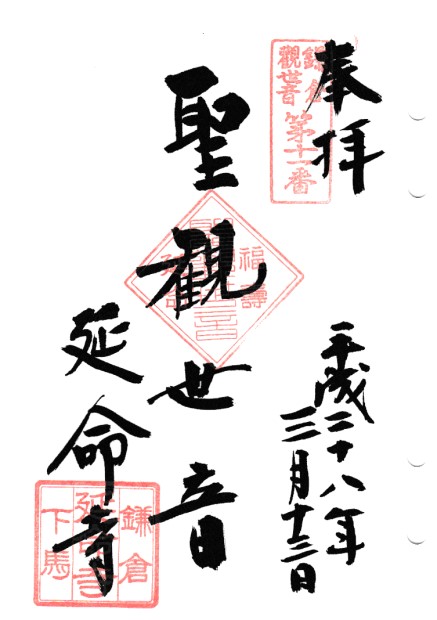 奉拝
鎌倉
觀世音
第十一番
平成二十八年
三月十三日
聖觀世音
福壽
延命寺
鎌倉
延命寺
下馬